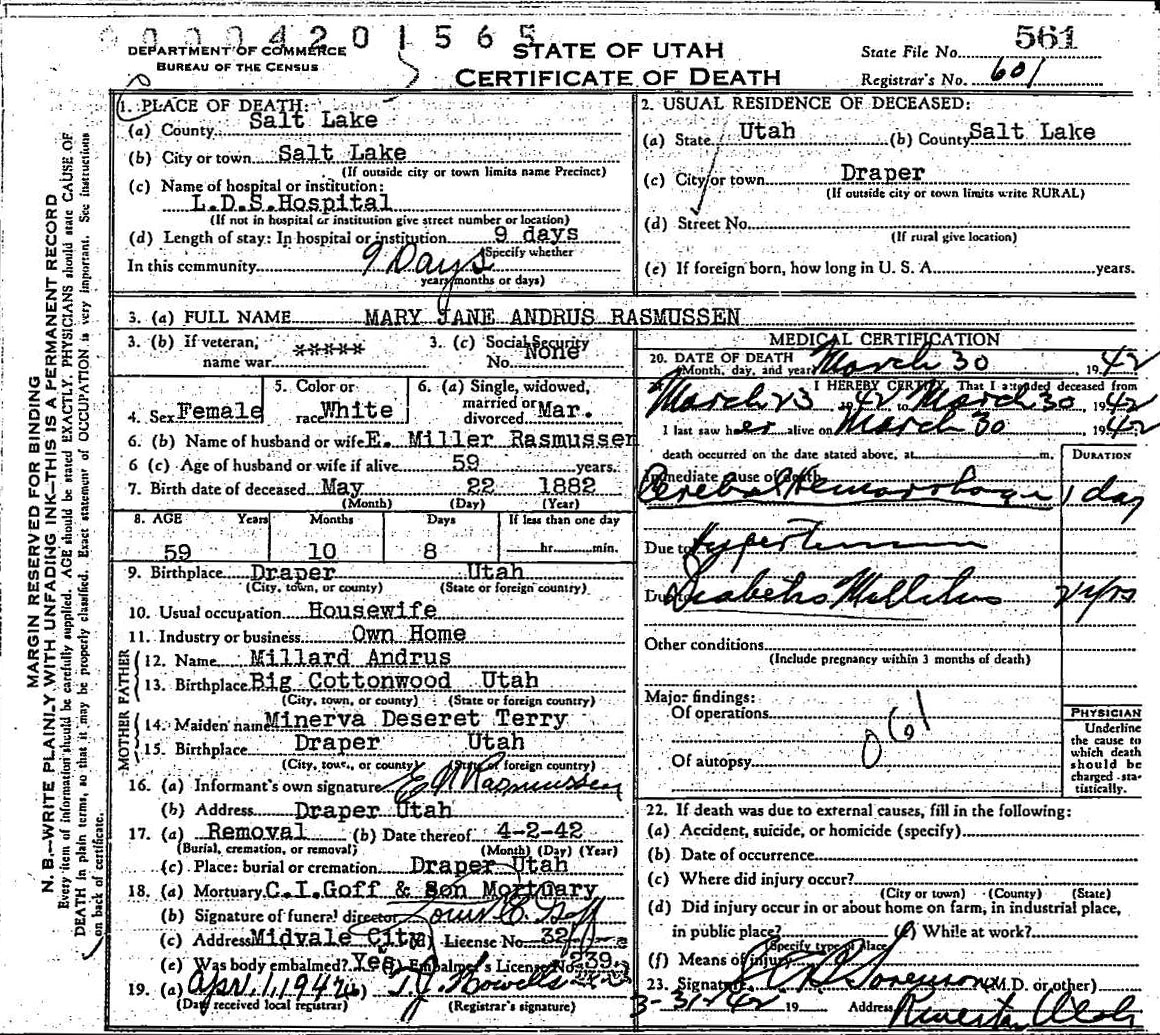 00004201565
DEPARTMENT OF COMMERCE
BUREAU OF THE CENSUS
STATE OF UTAH
CERTIFICATE OF DEATH
State File No. 561
Registrar's No. 601
MARGIN RESERVED FOR BINDING
N. B.—WRITE PLAINLY WITH UNFADING INK—THIS IS A PERMANENT RECORD
Every item of information should be carefully supplied. AGE should be stated EXACTLY. PHYSICIANS should state CAUSE OF
DEATH in plain terms, so that it may be properly classified. Exact statement of OCCUPATION is very important. See instructions
on back of certificate.
1. PLACE OF DEATH:
(a) County Salt Lake
(b) City or town Salt Lake
(If outside city or town limits name Precinct)
(c) Name of hospital or institution:
L.D.S.Hospital
(If not in hospital or institution give street number or location)
(d) Length of stay: In hospital or institution 9 days
(Specify whether
In this community 9 Days
years, months or days)
2. USUAL RESIDENCE OF DECEASED:
(a) State Utah (b) County Salt Lake
(c) City or town Draper
(If outside city or town limits write RURAL)
(d) Street No.
(If rural give location)
(e) If foreign born, how long in U. S. A. years.
3. (a) FULL NAME MARY JANE ANDRUS RASMUSSEN
3. (b) If veteran, name war xxxxx
3. (c) Social Security No. None
4. Sex Female
5. Color or race White
6. (a) Single, widowed, married or divorced Mar.
6. (b) Name of husband or wife E. Miller Rasmussen
6 (c) Age of husband or wife if alive 59 years.
7. Birth date of deceased May 22 1882
(Month) (Day) (Year)
8. AGE Years Months Days If less than one day
59 10 8 hr. min.
9. Birthplace Draper Utah
(City, town, or county) (State or foreign country)
10. Usual occupation Housewife
11. Industry or business Own Home
FATHER
12. Name Millard Andrus
13. Birthplace Big Cottonwood Utah
(City, town, or county) (State or foreign country)
MOTHER
14. Maiden name Minerva Deseret Terry
15. Birthplace Draper Utah
(City, town, or county) (State or foreign country)
16. (a) Informant's own signature Rasmussen
(b) Address Draper Utah
17. (a) Removal (b) Date thereof 4-2-42
(Burial, cremation, or removal) (Month) (Day) (Year)
(c) Place: burial or cremation Draper Utah
18. (a) Mortuary C.I.Goff & Son Mortuary
(b) Signature of funeral director Goff
(c) Address Midvale City (d) License No.
(e) Was body embalmed? Yes (f) Embalmer's License No. 239
19. (a) Apr. 1, 1942 (b) T. J. Howells
(Date received local registrar) (Registrar's signature)
MEDICAL CERTIFICATION
20. DATE OF DEATH
(Month, day, and year) March 30 1942
21. I HEREBY CERTIFY, That I attended deceased from
March 23 1942 to March 30 1942
I last saw her alive on March 30 1942
death occurred on the date stated above, at m.
DURATION
Immediate cause of death
Cerebral Hemorrhage 1 day
Due to Hypertension
Due to Diabetes Mellitus yrs
Other conditions
(Include pregnancy within 3 months of death)
Major findings:
Of operations
061
Of autopsy
PHYSICIAN
Underline
the cause to
which death
should be
charged sta-
tistically.
22. If death was due to external causes, fill in the following:
(a) Accident, suicide, or homicide (specify)
(b) Date of occurrence
(c) Where did injury occur?
(City or town) (County) (State)
(d) Did injury occur in or about home on farm, in industrial place,
in public place? (e) While at work?
(Specify type of place)
(f) Means of injury
23. Signature Sorenson (M.D. or other)
3-31-42 19 Address Riverton Utah